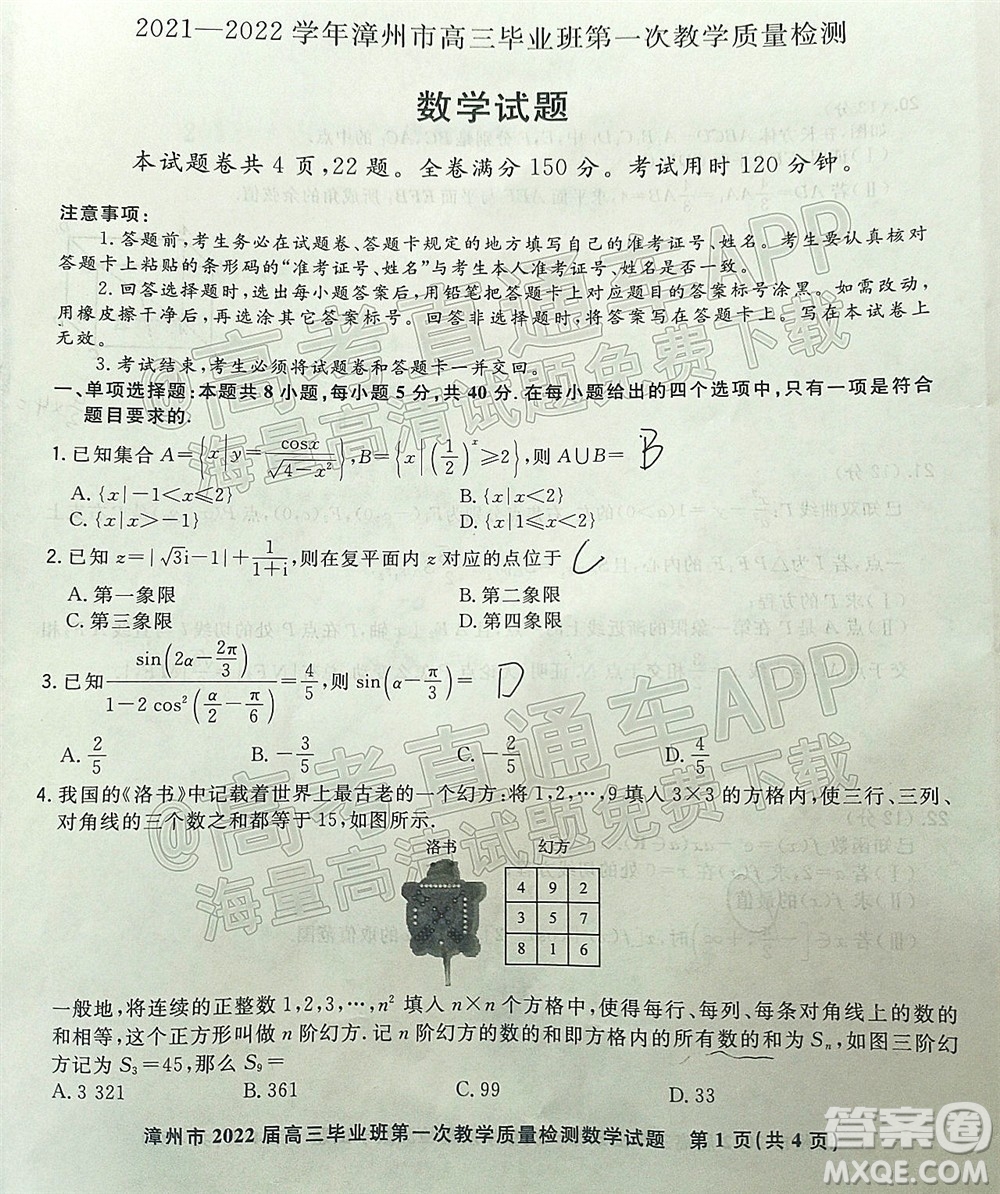 2021—2022学年漳州市高三毕业班第一次教学质量检测
数学试题
本试题卷共4页,22题。全卷满分150分。考试用时120分钟。
注意事项:
1.答题前,考生务必在试题卷、答题卡规定的地方填写自己的准考证号、姓名。考生要认真核对
答题卡上粘贴的条形码的“准考证号、姓名”与考生本人准考证号、姓名是否一致。
2.回答选择题时,选出每小题答案后,用铅笔把答题卡上对应题目的答案标号涂黑。如需改动,
用橡皮擦干净后,再选涂其它答案标号。回答非选择题时,将答案写在答题卡上。写在本试卷上
无效。
3.考试结束,考生必须将试题卷和答题卡一并交回。
一、单项选择题:本题共8小题,每小题5分,共40分.在每小题给出的四个选项中,只有一项是符合
题目要求的.
1.已知集合A={x|y=cosx/√(4-x²)},B={x|(1/2)^x≥2},则A∪B= B
A.{x|-1<x≤2} B.{x|x<2}
C.{x|x>-1} D.{x|x≤2}
2.已知z=|√3i-1|+1/(1+i),则在复平面内z对应的点位于 C
A.第一象限 B.第二象限
C.第三象限 D.第四象限
3.已知sin(2α-2π/3)/(1-2cos²(α/2-π/6))=4/5,则sin(α-π/3)= D
A.2/5 B.-3/5 C.-2/5 D.4/5
4.我国的《洛书》中记载着世界上最古老的一个幻方:将1,2,…,9填入3×3的方格内,使三行、三列、
对角线的三个数之和都等于15,如图所示.
洛书 幻方
4 9 2
3 5 7
8 1 6
一般地,将连续的正整数1,2,3,…,n²填入n×n个方格中,使得每行、每列、每条对角线上的数的
和相等,这个正方形叫做n阶幻方.记n阶幻方的数的和即方格内的所有数的和为Sn,如图三阶幻
方记为S₃=45,那么S₉=
A.3 321 B.361 C.99 D.33
漳州市2022届高三毕业班第一次教学质量检测数学试题 第1页(共4页)
@高考直通车APP
海量高清试题免费下载
@高考直通车APP
海量高清试题免费下载
答案圈
MXQE.COM